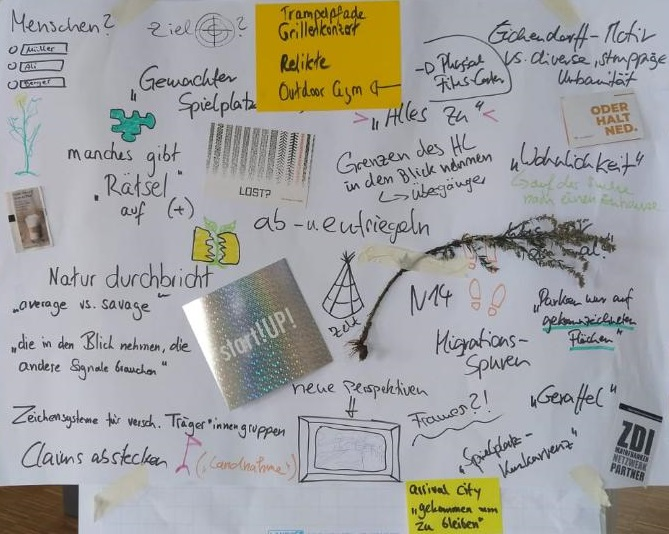 Menschen?
Müller
Ali
Ziel ?
Trampelpfade
Grillenkonzert
Relikte
Outdoor Gym
Eichendorff-Motiv
vs. diverse, struppige
Urbanität
"Gewachter
Spielplatz
"Alles zu"
ODER
HALT
NED.
manches gibt
"Rätsel"
auf (+)
LOST?
Grenzen des HL
in den Blick nehmen
übergänger
"Wohnlichkeit"
ab- u. entriegeln
Natur durchbricht
"average vs. savage"
start!UP!
Zelt
N14
"Parken nur auf
gekennzeichneten
Flächen"
"die in den Blick nehmen, die
andere Signale brauchen"
Migrations-
Spuren
neue Perspektiven
"Geraffel"
Zeichensysteme für versch. Träger*innengruppen
Frames?!
Claims abstecken
("Landnahme")
"Spielplatz-
Konkurrenz"
ZDI
MAINFRANKEN
NETZWERK
PARTNER
arrival city
"gekommen um
zu bleiben"